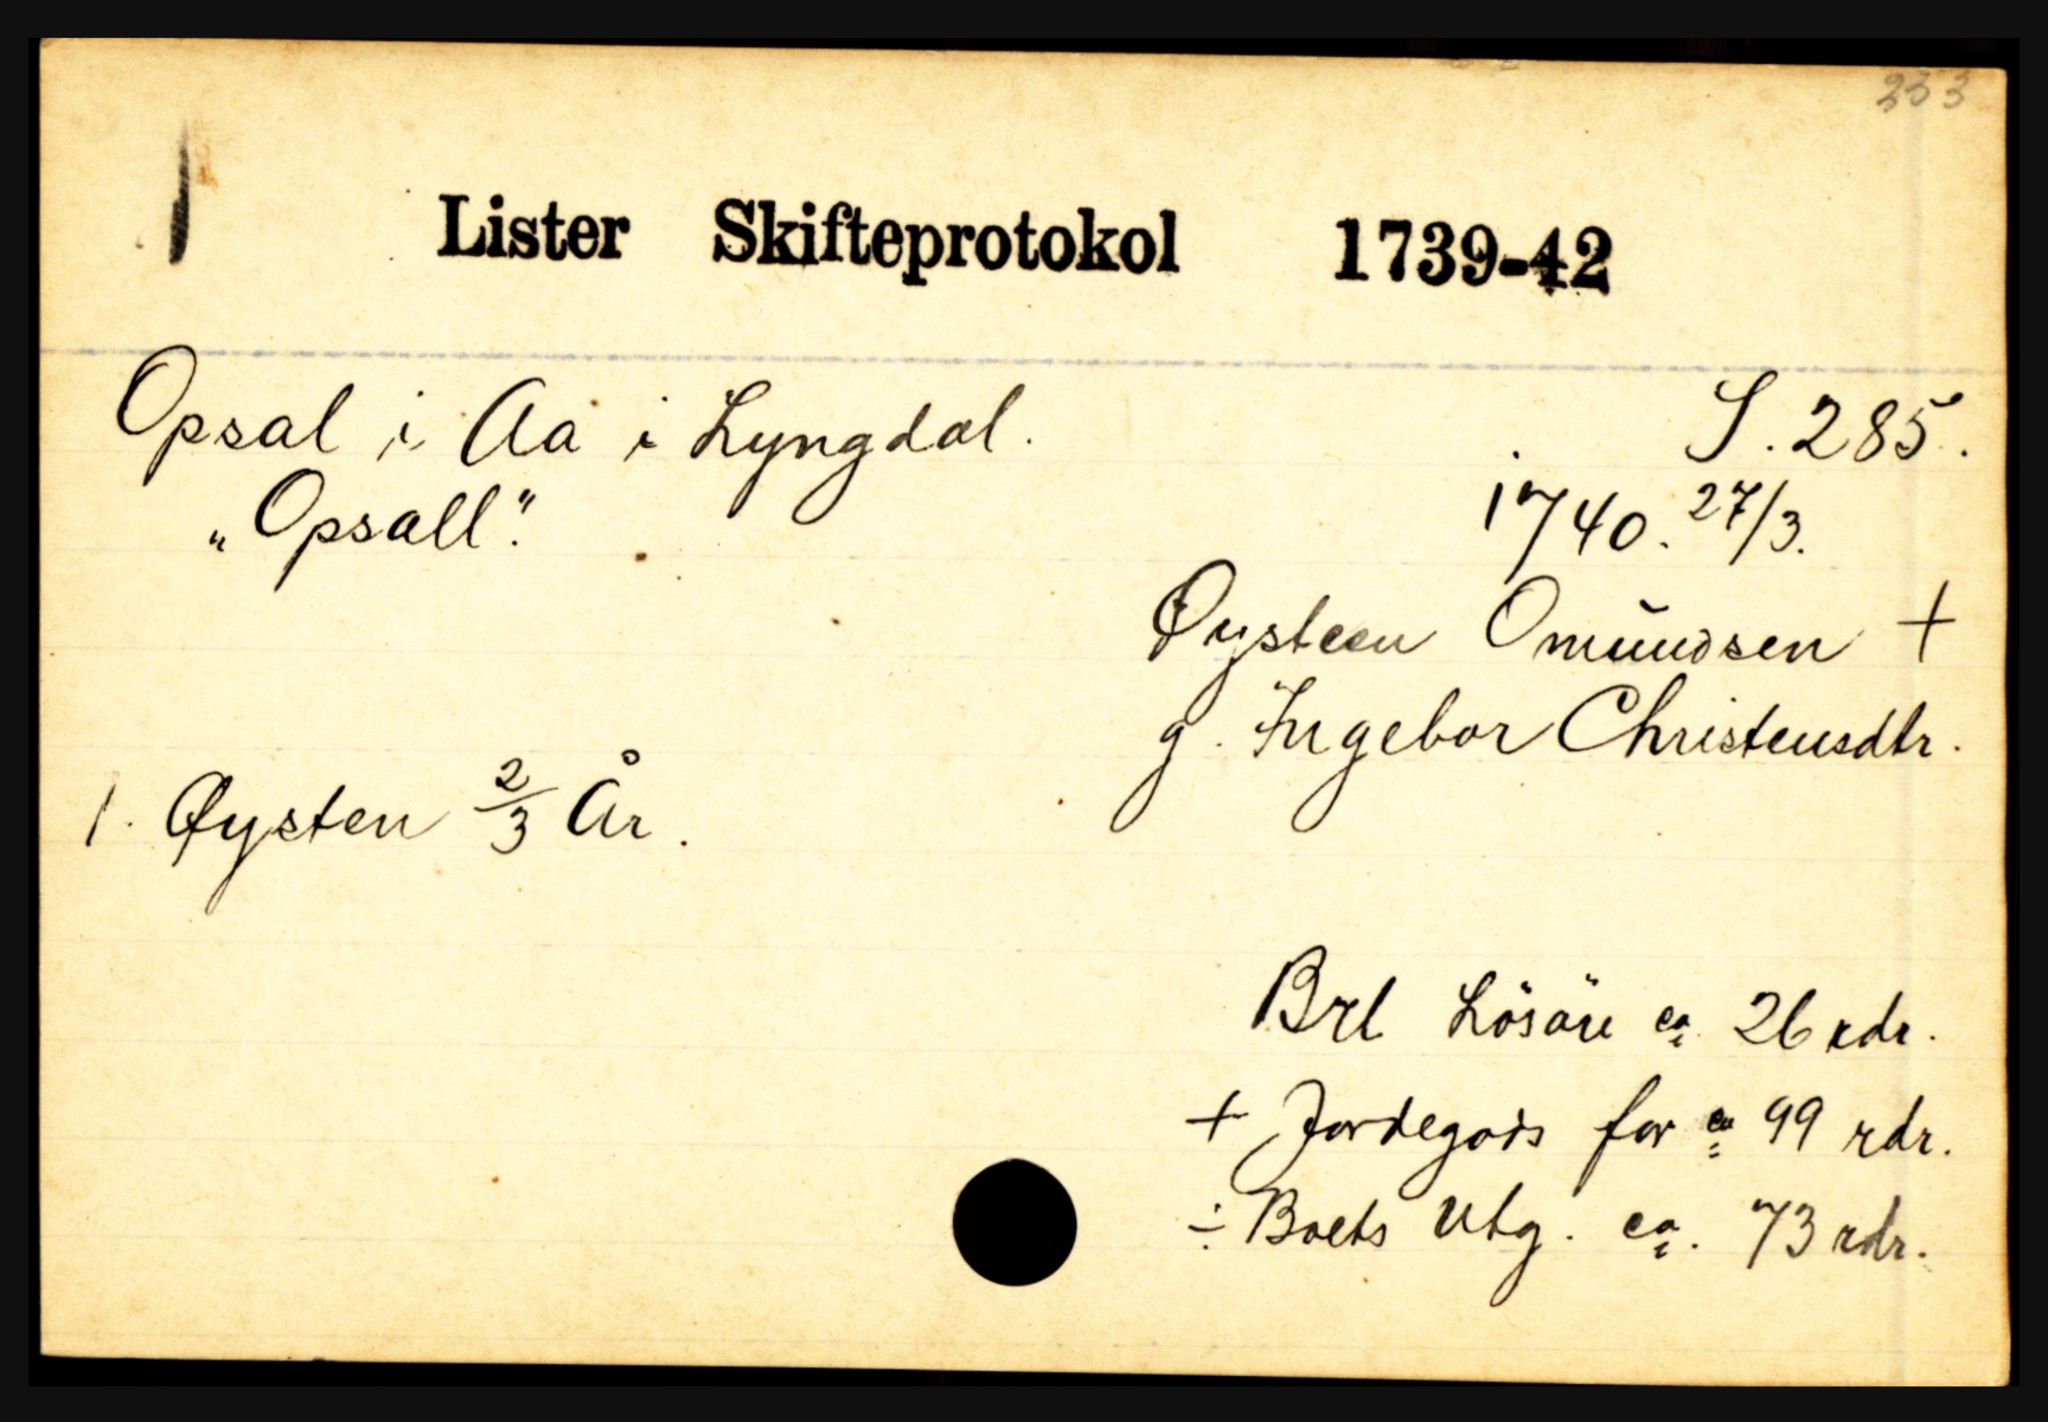 233
Lister Skifteprotokol 1739-42
Opsal i Aa i Lyngdal. S. 285.
„Opsall". 1740. 27/3.
Øysteen Omŭndsen +
g. Ingebor Christensdtr.
1. Øysten 2/3 År.
Brt Lösöre ca 26 rdr.
+ Jordegods for ca 99 rdr.
÷ Boets Utg. ca. 73 rdr.